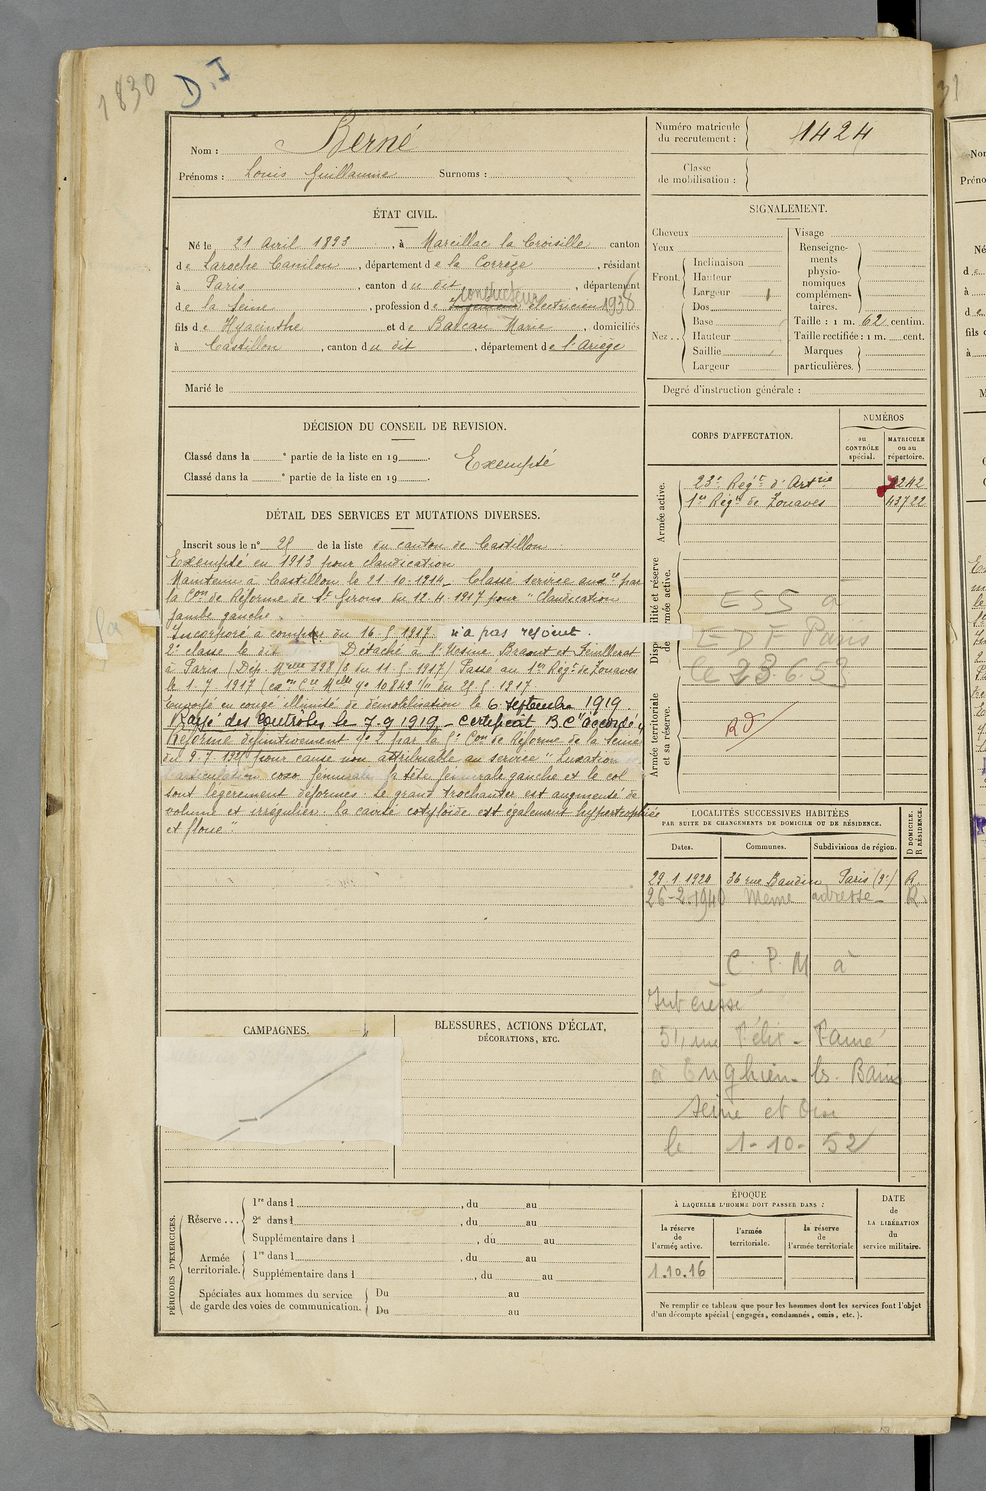 1830 D.I
Nom : Berné
Prénoms : Louis Guillaume Surnoms :
Numéro matricule du recrutement : 1424
Classe de mobilisation :
ÉTAT CIVIL.
Né le 21 Avril 1893, à Marcillac la Croisille canton
de Laroche Canilon, département de la Corrèze, résidant
à Paris, canton du dit, département
de la Seine, profession de conducteur électricien 1938
fils de Hyacinthe et de Balcau Marie, domiciliés
à Castillon, canton du dit, département de l'Ariège
Marié le
SIGNALEMENT.
Cheveux
Yeux
Front. Inclinaison
Hauteur
Largeur
Nez .. Dos
Base
Hauteur
Saillie
Largeur
Visage
Renseignements physionomiques complémentaires.
Taille : 1 m. 62 centim.
Taille rectifiée : 1 m. cent.
Marques particulières.
Degré d'instruction générale :
DÉCISION DU CONSEIL DE REVISION.
Classé dans la e partie de la liste en 19 . Exempté
Classé dans la e partie de la liste en 19 .
DÉTAIL DES SERVICES ET MUTATIONS DIVERSES.
Inscrit sous le n° 28 de la liste du canton de Castillon
Exempté en 1913 pour claudication
Maintenu à Castillon le 21.10.1914. Classé service auxre par
la Con de Réforme de St Girons du 12.4.1917 pour "Claudication
jambe gauche".
Incorporé à compter du 16.5.1917. n'a pas rejoint.
2e classe le dit Détaché à l'Usine Braont et Feuillerat
à Paris (Dép. Melle 398/2 du 11.5.1917) Passé au 1er Regt de Zouaves
le 1.7.1917
Envoyé en congé illimité de démobilisation le 6 septembre 1919.
Rayé des Contrôles le 7.9.1919. Certificat B.C. accordé
Réformé définitivement N° 2 par la 5e Con de Réforme de la Seine
du 9.7.19 pour cause non attribuable au service "Luxation
l'articulation coxo fémurale la tête fémurale gauche et le col
sont légèrement déformés. Le grand trochanter est augmenté de
volume et irrégulier. la cavité cotyloïde est également hypertrophiée
et floue".
CORPS D'AFFECTATION.
NUMÉROS
au CONTRÔLE spécial.
MATRICULE ou au répertoire.
Armée active.
23e Régt d'Artrie 9242
1er Régt de Zouaves 43722
Disponibilité et réserve de l'armée active.
ESS a
EDF Paris
le 23.6.53
Armée territoriale et sa réserve.
RD
LOCALITÉS SUCCESSIVES HABITÉES
PAR SUITE DE CHANGEMENTS DE DOMICILE OU DE RÉSIDENCE.
Dates. Communes. Subdivisions de région. D DOMICILE. R RÉSIDENCE.
29.1.1924 36 rue Baudin Paris (9e) R.
26-2-1940 Même adresse R.
C.P.M à
Intéressé
51, rue Félix - Faure
à Enghien - ls. Bains
Seine et Oise
le 1-10-52
CAMPAGNES.
BLESSURES, ACTIONS D'ÉCLAT,
DÉCORATIONS, ETC.
PÉRIODES D'EXERCICES.
Réserve ... 1re dans l , du au
2e dans l , du au
Supplémentaire dans l , du au
Armée territoriale. 1re dans l , du au
Supplémentaire dans l , du au
Spéciales aux hommes du service de garde des voies de communication. Du au
Du au
ÉPOQUE
À LAQUELLE L'HOMME DOIT PASSER DANS :
la réserve de l'armée active.
l'armée territoriale.
la réserve de l'armée territoriale
DATE de LA LIBÉRATION du service militaire.
1.10.16
Ne remplir ce tableau que pour les hommes dont les services font l'objet
d'un décompte spécial (engagés, condamnés, omis, etc.).